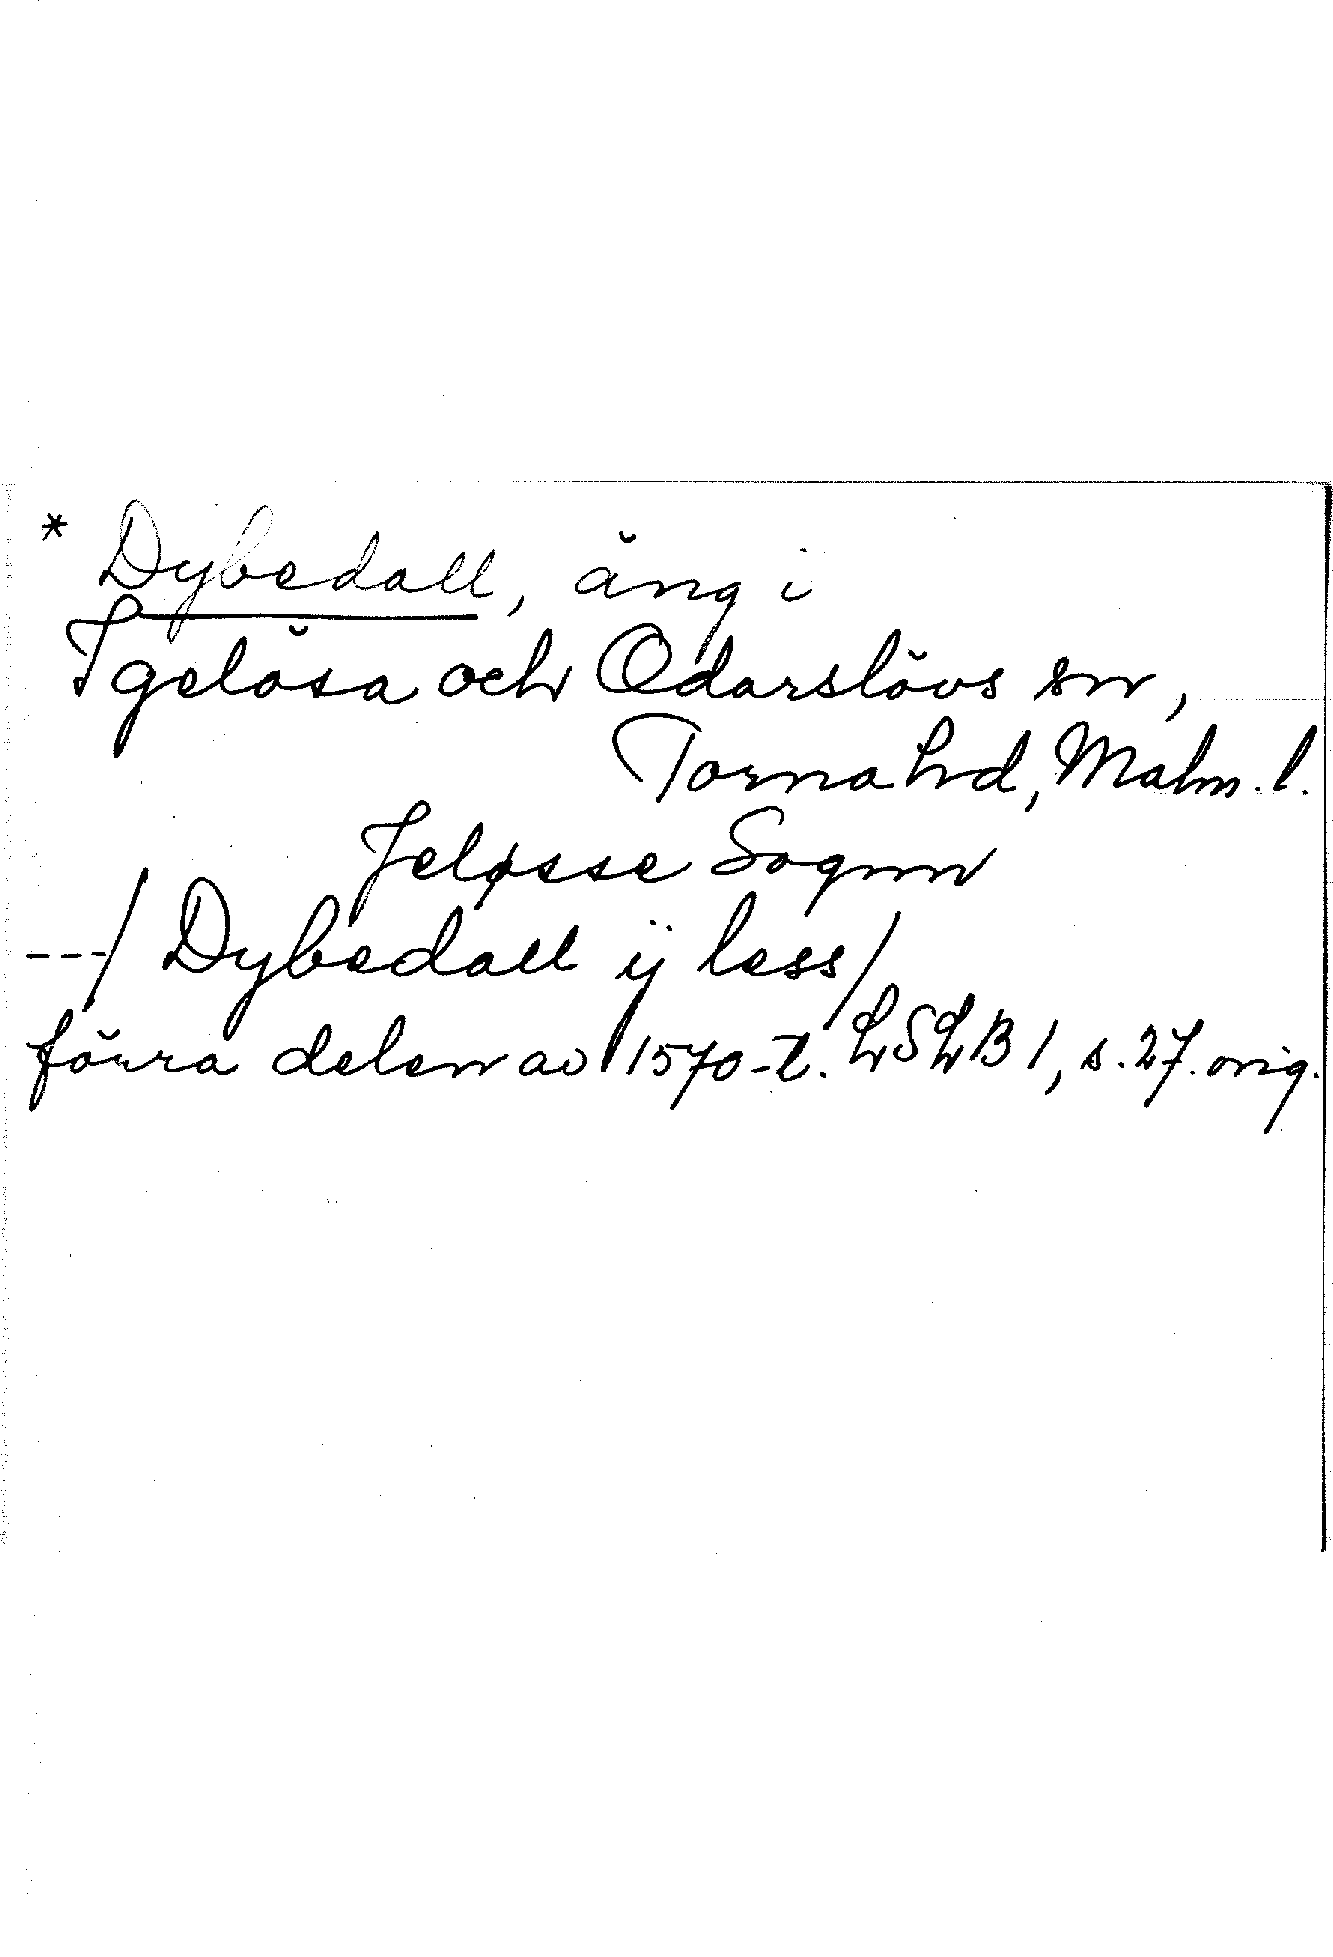 * Dybedall, äng i
Igelösa och Odarslövs sn,
Torna hd, Malm. l.
Jeløsse Sognn
---/ Dybedall ij less/
förra delen av 1570-t. LSLB 1, s. 27. orig.